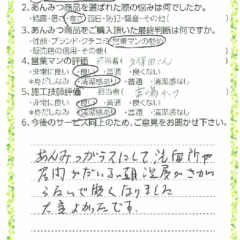 2.あんみつ商品を選ばれた際の悩みは何でしたか。
・結露・暑さ・寒さ・西日・防犯・騒音・その他( )
3.あんみつ商品をご購入頂いた最終判断は何ですか。
・性能・ブランド・クチコミ・営業マンの勧め
・販売店の信用・その他( )
4.営業マンの評価 担当者( 久保田さん )
・非常に良い・良い・普通・良くない
※身だしなみ 清潔感あり・普通・清潔感なし
5.施工技師評価 担当者( )
・非常に良い・良い・普通・良くない
※身だしなみ 清潔感あり・普通・清潔感なし
6.今後のサービス向上のため、ご意見をお聞かせ下さい。
あんみつガラスにして、洗面所や
居間がだいぶ朝、温度がさがら
ないで暖くなりました
大変よかったです。